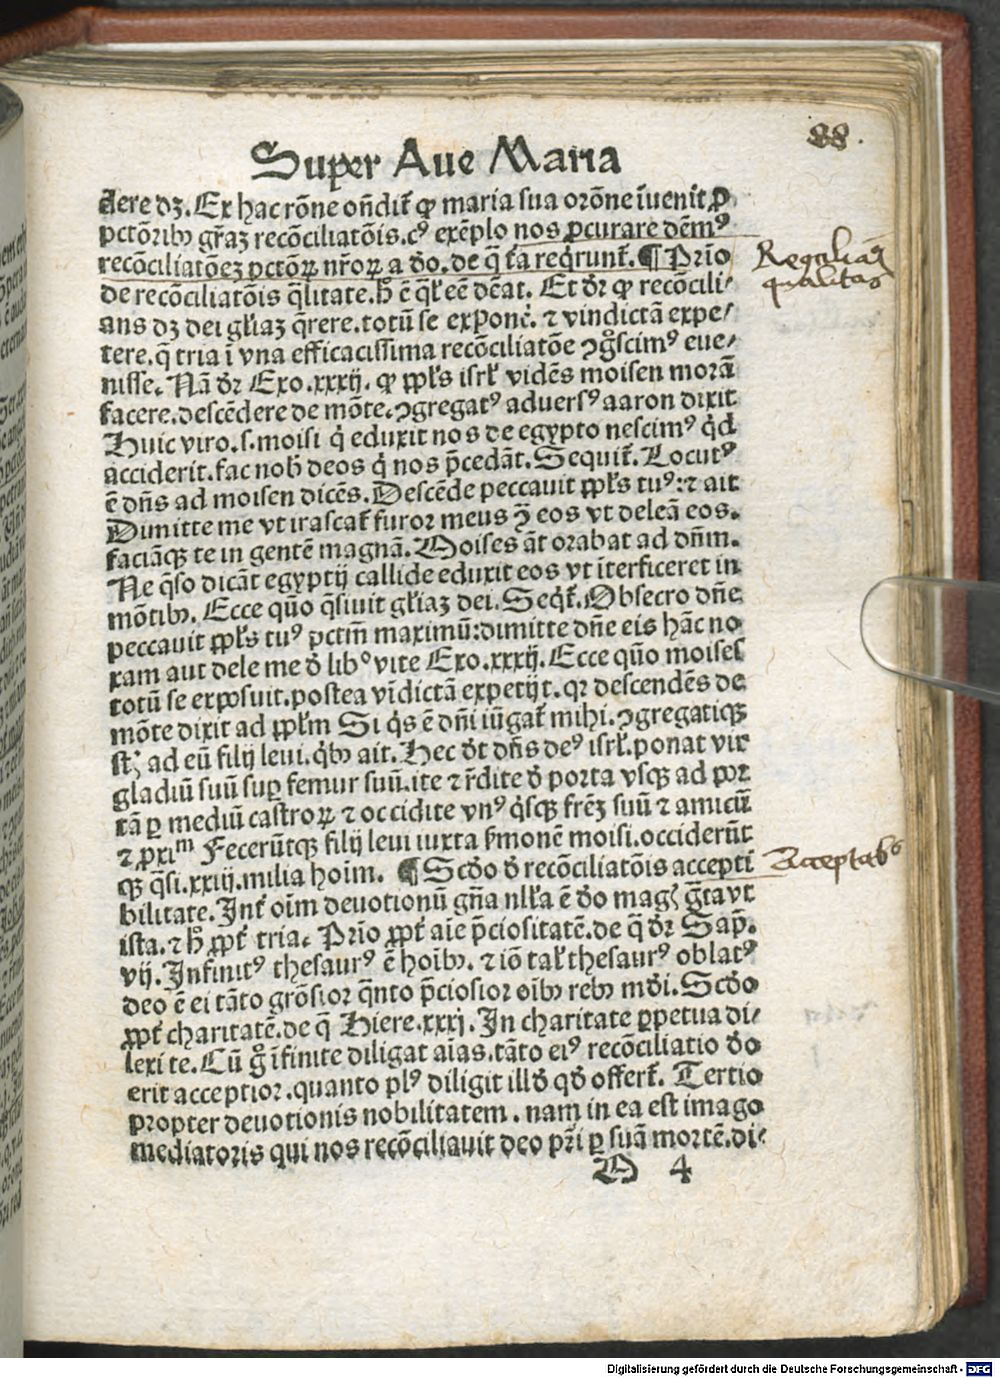 88.
Super Aue Maria
dere dꝫ. Ex hac rōne oñdit̄ ꝙ maria sua orōne īuenit ꝓ
pctōribꝰ gr̄aꝫ recōciliatōis. cꝰ exēplo nos ꝓcurare dēmꝰ
recōciliatōeꝫ pctōꝝ nr̄oꝝ a dō. de q̄ t̄a reqͥrunt̄. ¶ Prīo
Regoliaӡ
qualitas
de recōciliatōis q̄litate. h̄ ē ql̄' eē dēat. Et dr̄ ꝙ recōcili⸗
ans dꝫ dei gl̄iaꝫ q̄rere. totū se exponē. ⁊ vindictā expe⸗
tere. q̄ tria ī vna efficacissima recōciliatōe ꝯgͦscimꝰ eue⸗
nisse. Nā dr̄ Exo. xxxij. ꝙ ppl̄s isrl̄' vidēs moisen morā
facere. descēdere de mōte. ꝯgregatꝰ aduersꝰ aaron dixit
Huic viro. s. moisi qͥ eduxit nos de egypto nescimꝰ qͥd
acciderit. fac nob̄ deos qͥ nos p̄cedāt. Sequit̄. Locutꝰ
ē dn̄s ad moisen dicēs. Descēde peccauit ppl̄s tuꝰ: ⁊ ait
Dimitte me vt irascat̄ furor meus ꝯ̄ eos vt deleā eos.
faciāqꝫ te in gentē magnā. Moises āt orabat ad dn̄m.
Ne q̄so dicāt egyptij callide eduxit eos vt īterficeret in
mōtibꝰ. Ecce quō q̄siuit gl̄iaꝫ dei. Seqͥt̄. Obsecro dn̄e
peccauit ppl̄s tuꝰ pctm̄ maximū: dimitte dn̄e eis hāc no
xam aut dele me d̄ libͦ vite Exo. xxxij. Ecce quō moises
totū se exposuit. postea vīdictā expetijt. qꝛ descendēs de
mōte dixit ad ppl̄m Si qͥs ē dn̄i iūgat̄ mihi. ꝯgregatiqꝫ
st̄ ad eū filij leui. qͥbꝰ ait. Hec dt̄ dn̄s deꝰ isrl̄'. ponat vir
gladiū suū suꝑ femur suū. ite ⁊ r̄dite d̄ porta vsqꝫ ad por
tā ꝑ mediū castroꝝ ⁊ occidite vnꝰ qͥsqꝫ fr̄eꝫ suū ⁊ amicū
⁊ ꝓxiᵐ Fecerūtqꝫ filij leui iuxta ẜmonē moisi. occiderūt
qꝫ q̄si. xxiij. milia hoīm. ¶ Scd̄o d̄ recōciliatōis accepti
Acceptabˢ
bilitate. Int̄ oīm deuotionū gn̄a nll̄a ē dō mag̃ gͣta vt
ista. ⁊ h̄ ꝓpt̄ tria. Prīo ꝓpt̄ aīe p̄ciositatē. de q̄ dr̄ Sap̄.
vij. Infinitꝰ thesaurꝰ ē hoībꝰ. ⁊ iō tal̄' thesaurꝰ oblatꝰ
deo ē ei tāto grōsior q̄nto p̄ciosior oībꝰ rebꝰ mdi. Scd̄o
ꝓpt̄ charitatē. de q̄ Hiere. xxxj. In charitate ꝑpetua di⸗
lexi te. Cū gͦ īfinite diligat aīas. tāto eiꝰ recōciliatio dō
erit acceptior. quanto plꝰ diligit illd̄ qd̄ offert̄. Tertio
propter deuotionis nobilitatem. nam in ea est imago
mediatoris qui nos recōciliauit deo pr̄i ꝑ suā mortē. di⸗
O 4
Digitalisierung gefördert durch die Deutsche Forschungsgemeinschaft - DFG